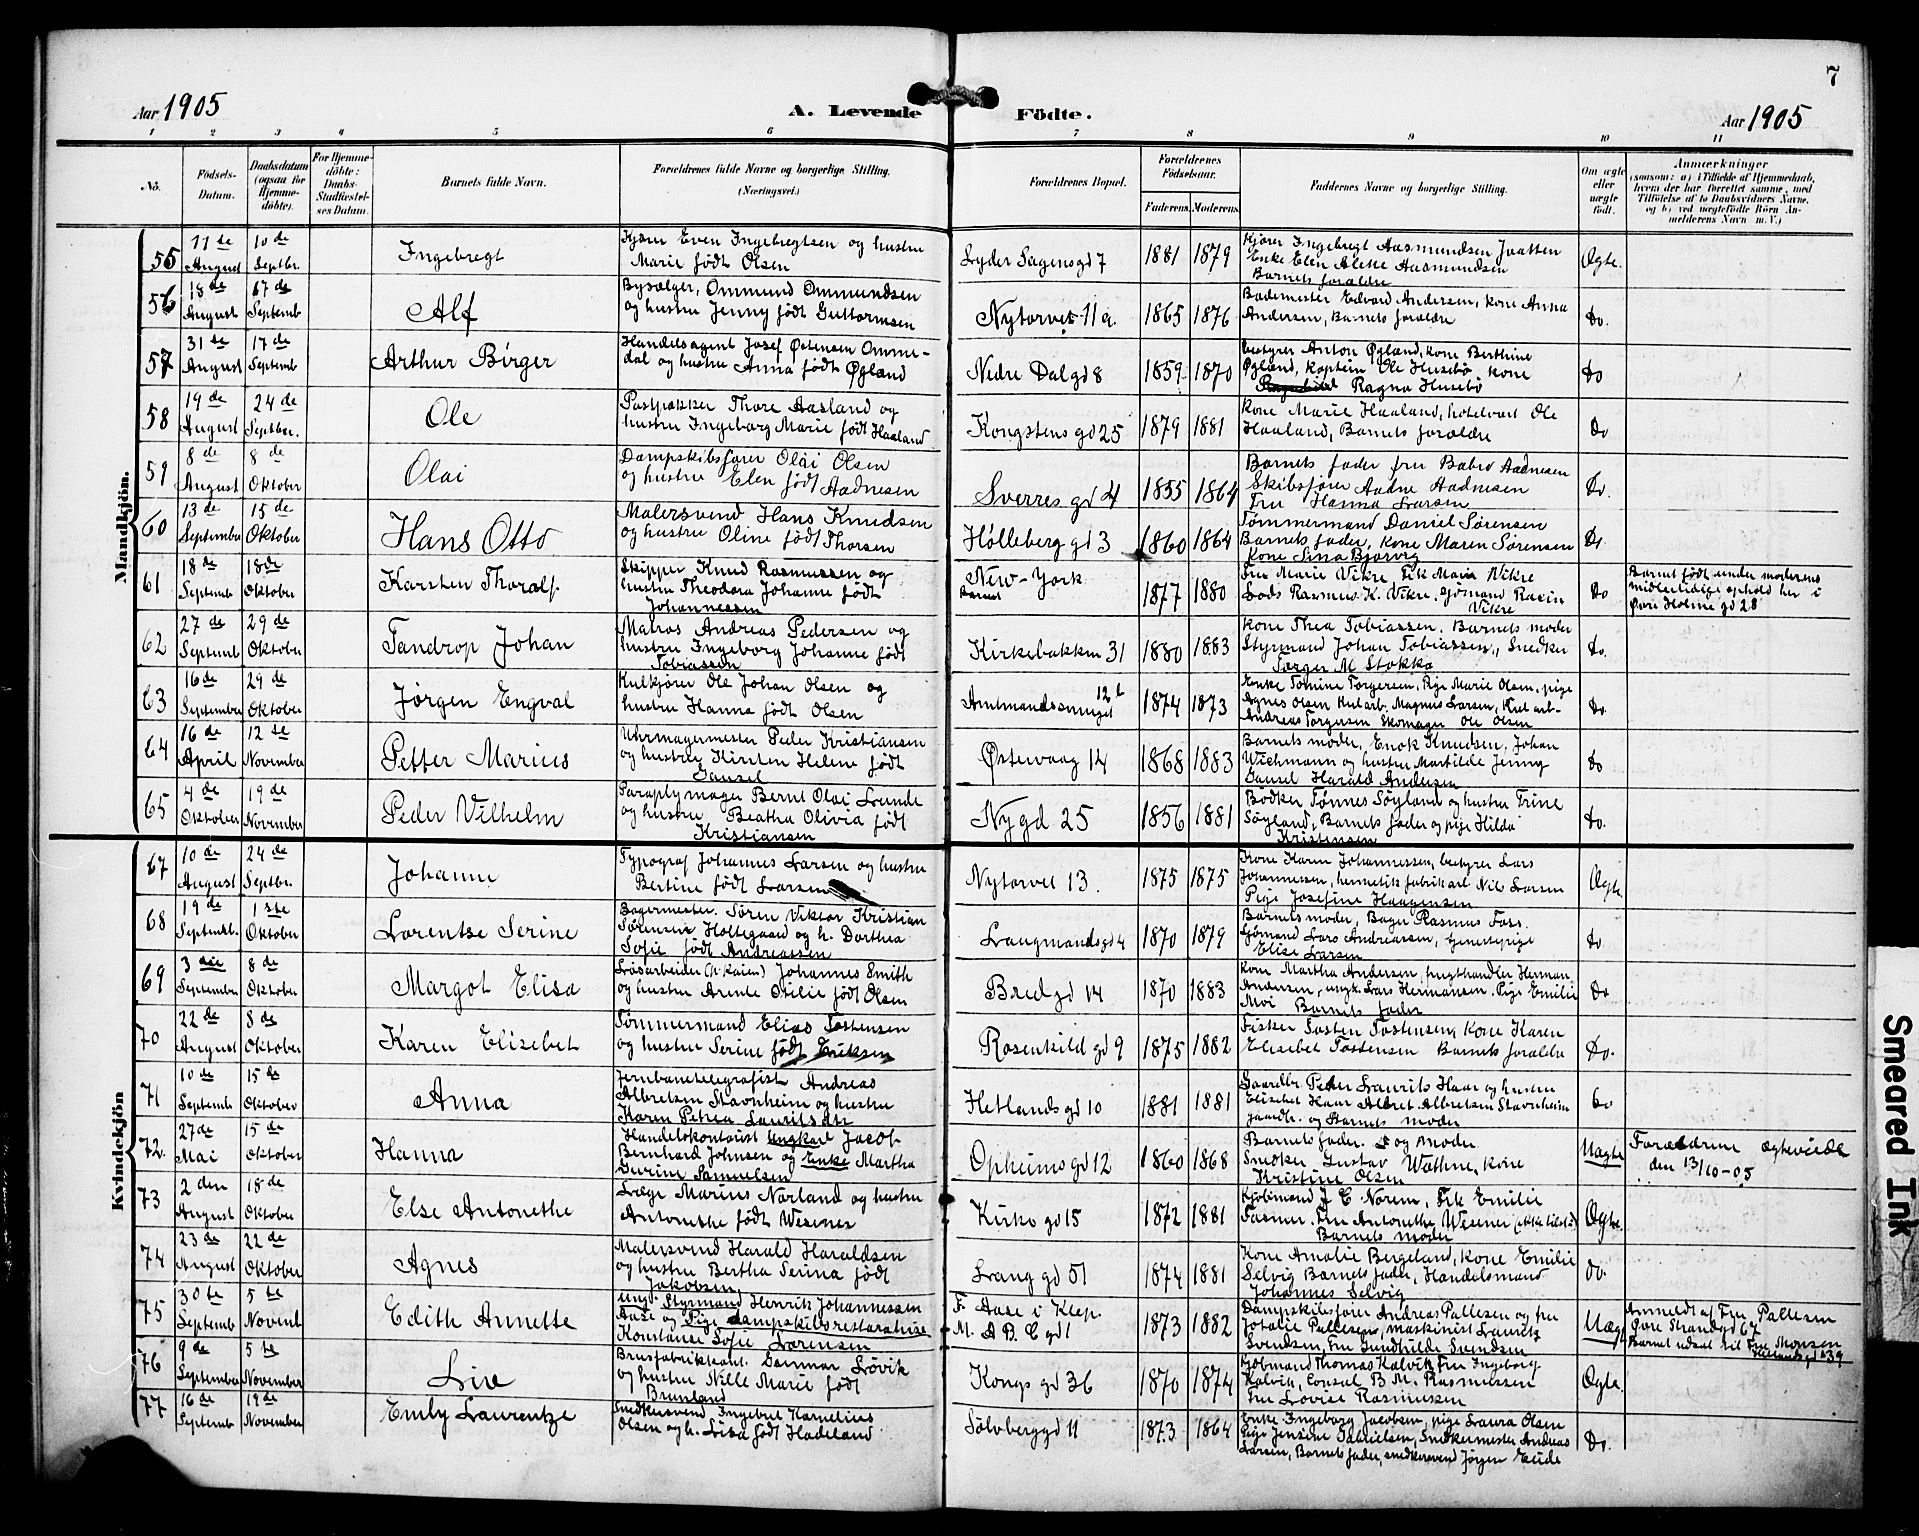 7
Aar 1905
A. Levende Födte.
Aar 1905
1 2 3 4 5 6 7 8 9 10 11
No.
Födsels-Datum.
Daabsdatum (ogsaa for Hjemme-döbte).
For Hjemme-döbte: Daabs-Stadfæstel-ses Datum.
Barnets fulde Navn.
Forældrenes fulde Navne og borgerlige Stilling. (Næringsvei.)
Forældrenes Bopæl.
Forældrenes Födselsaar.
Faderens. Moderens.
Faddernes Navne og borgerlige Stilling.
Om ægte eller uægte födt.
Anmærkninger
(saasom: a) i Tilfælde af Hjemmedaab, hvem der har forrettet samme, med Tilföielse af to Daabsvidners Navne, og b) ved uægtefödte Börn An-melderens Navn m. V.)
Mandkjön.
55 11 de August 10 de Septbr. Ingebregt
Kjører Even Ingebregtsen og hustru Marie født Olsen
Lyder Sagensgd 7 1881 1879
Kjører Ingebregt Aasmundsen Jaatten Enke Elen Aleke Aasmundsen Barnets forældre
Ægte.
56 18 de August 17 de Septemb Alf
Bysælger, Ommund Ommundsen og hustru Jenny født Guttormsen
Nytorvet 11 a. 1865 1876
Bademester Edvard Andersen, kone Anna Andersen, Barnets forældre
Do.
57 31 te August 17 de Septemb Arthur Birger
Handelsagent Josef Østensen Omme-dal og hustru Anna født Øgland
Nedre Dalgd 8 1859 1870
bestyrer Anton Øgland, kone Berthine Øgland, kaptein Ole Husebø, kone Ragna Husebø
Do
58 19 de August 24 de Septbr. Ole
Postpakker Thore Aasland og hustru Ingeborg Marie født Haaland
Kongstens gd 25 1879 1881
Kone Marie Haaland, hotelvert Ole Haaland, Barnets forældre
Do
59 8 de August 8 de Oktober Olai
Dampskibsfører Olai Olsen og hustru Elen født Aadnesen
Sverres gd 4 1855 1864
Barnets fader fru Babro Aadnesen Skibsfører Aadne Aadnesen Fru Hanna Larsen
Do.
60 13 de September 15 de Oktober Hans Otto
Malersvend Hans Knudsen og hustru Oline født Thorsen
Hølleberg gd 3 1860 1864
Tømmermand Daniel Sørensen Barnets fader, kone Maren Sørensen kone Sina Bjorvig
Do
61 18 de Septemb 18 de Oktober Karsten Thoralf
Skipper Knud Rasmussen og hustru Theodora Johanne født Johannessen
New-York 1877 1880
Fru Marie Vikre Frk Maria Vikre Lods Rasmus K. Vikre, Sømand Vikre
Do
Barnet født under moderens midlertidige ophold her i Øvre Holme gd 28
62 27 de Septemb 29 de Oktober Tandrop Johan
Matros Andreas Pedersen og hustru Ingeborg Johanne født Tobiassen
Kirkebakken 31 1880 1883
Kone Thea Tobiassen, Barnets moder Styrmand Johan Tobiassen, Snedker Torger M Stokka
Do.
63 16 de September 29 de Oktober Jørgen Engval
Kulkjører Ole Johan Olsen og hustru Hanna født Olsen
Amtmandssmuget 12 b 1874 1873
Enke Tomine Torgersen, Pige Marie Olsen, pige Agnes Olsen Kularb. Magnus Larsen, Kul arb- Andreas Torgersen Skomager Ole Olsen
Do
64 16 de April 12 te November Petter Marius
Uhrmagermester Peder Kristiansen og hustru Kirsten Helene født Gausel
Østervaag 14 1868 1883
Barnets moder, Enok Knudsen, Johan Wichmann og hustru Martilde Jenny Gausel Harald Andersen
Do
65 4 de Oktober 19 de November Peder Vilhelm
Paraplymager Bernt Olai Lunde og hustru Beatha Olivia født Kristiansen
Nygd 25 1856 1881
Bødker Tønnes Søyland og hustru Trine Søyland, Barnets fader og pige Hilda Kristensen
Do.
Kvindekjön
67 10 de August 24 de Septbr. Johanne
Typograf Johannes Larsen og hustru Bertine født Larsen
Nytorvet 13. 1875 1875
Kone Karen Johannessen, bestyrer Lars Johannessen, hermetikfabrikarb Nils Larsen Pige Josefine Haagensen
Ægte.
68 19 de Septemb. 1 ste Oktober Lorentse Serine
Bagermester Søren Viktor Kristian Sørensen Holtegaard og h. Dorthea Sofie født Andreassen
Langmandsgd 4 1870 1879
Barnets moder, Bager Rasmus Foss. Sømand Lars Andreassen, tjenestepige Elise Larsen
Do
69 3 die September 8 de Oktober Margot Elisa
Løsarbeider Johannes Smith og hustru Arente Otilie født Olsen
Bredgd 14 1870 1883
Kone Martha Andersen, frugthandler Herman Andersen, ungk. Lars Hermansen, Pige Emilie Moi Barnets fader
Do
70 22 de August 8 de Oktober Karen Elisebet
Tømmermand Elias Tostensen og hustru Serine født Eriksen
Rosenkild gd 9 1875 1882
Fisker Tosten Tostensen, kone Karen Elisebet Tostensen Barnets forældre
Do.
71 10 de Septemb 15 de Oktober Anna
Jernbanetelegrafist Andreas Albretsen Stavnheim og hustru Karen Petrea Lauritsdtr
Hetlandsgd 10 1881 1881
Gaardbr. Peder Laurits Haar og hustru Elisebet Haar Albret Albretsen Stavnheim gaardb. og Barnets moder
Do
72. 27 de Mai 15 de Oktober Hanna
Handelskontorist Ungkarl Jacob Bernhard Johnsen og Enke Martha Gurine Samuelsen
Opheimsgd 12 1860 1868
Barnets fader og moder Snedker Gustav Wathne, kone Kristine Olsen
Uægte
Forældrene ægteviede den 13/10-05
73 2 den August 18 de Oktober Else Antonethe
Læge Marius Norland og hustru Antonethe født Wesener
Kirkegd 15 1872 1881
Kjøbmand J C Norem, Frk Emilie Fasmer. Fru Antonethe Wesener Barnets moder
Ægte.
74 23 de August 22 de Oktober Agnes
Malersvend Harald Haraldsen og hustru Bertha Serina født Jakobsen
Langgd 51 1874 1881
Kone Amalie Bergeland, kone Emilie Selvig Barnets fader, Handelsmand Johannes Selvig
Do.
75 30 te Septemb 5 te Novemb Edith Annette
Ungk. Styrmand Henrik Johannessen Aase og Pige dampskibsrestauratrise Konstanse Sofie Sørensen
F. Aase i Klep. M. A B C gd 1 1873 1882
Dampskibsfører Andreas Pallesen og fru Johanne Pallesen, maskinist Lauritz Svendsen, Fru Gundhilde Svendsen
Uægte
Anmeldt af Fru Pallesen Øvre Strandgd 67 Barnet udsat til Fru Monsen Hetlandsgd 39
76 9 de September 5 te November Live
Brusfabrikkant. Danmar Løvik og hustru Nille Marie født Bruuland
Kongs gd 36 1870 1874
Kjøbmand Thomas Kalvik Fru Ingeborg Kalvik, Consul B M. Rasmussen Fru Lovise Rasmussen
Ægte.
77 16 de Septemb 19 de November Emily Laurentze
Snedkersvend Ingebret Kornelius Olsen og h. Lisa født Hadeland
Sølvberggd 11 1873 1864
Enke Ingeborg Jacobsen, pige Laura Olsen Pige Jensine Gabrielsen, Snedkermester Andreas Larsen, Barnets fader, snedkersvend Jørgen Eide
Do.
Smeared Ink